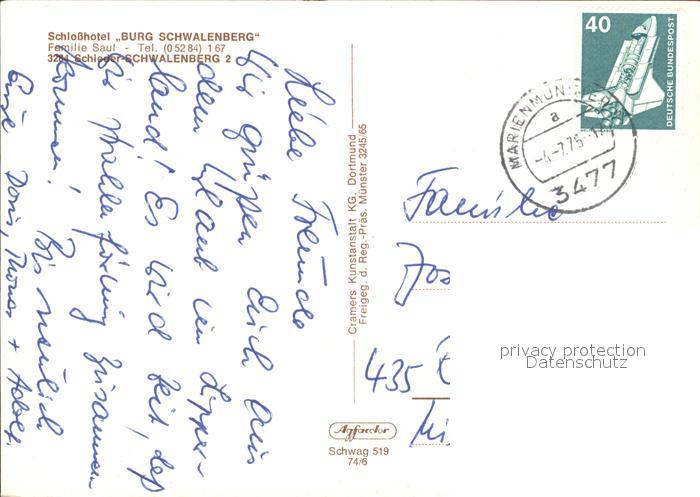 Schloßhotel „BURG SCHWALENBERG“
Familie Saul - Tel. (0 52 84) 1 67
3284 Schieder-SCHWALENBERG 2
Liebe Freunde
Wir grüßen Euch aus
dem Urlaub im Lipper-
land! Es wird Zeit, daß
wir mal
zusammen
kommen! Bis neulich
Eure Doris, Thomas +
Cramers Kunstanstalt KG, Dortmund
Freigeg. d. Reg.-Präs. Münster 3245/65
40
DEUTSCHE BUNDESPOST
MARIENMÜNSTER
a
-4.-7.75-
3477
Familie
Jos
435
Agfacolor
Schwag 519
74/6
privacy protection
Datenschutz